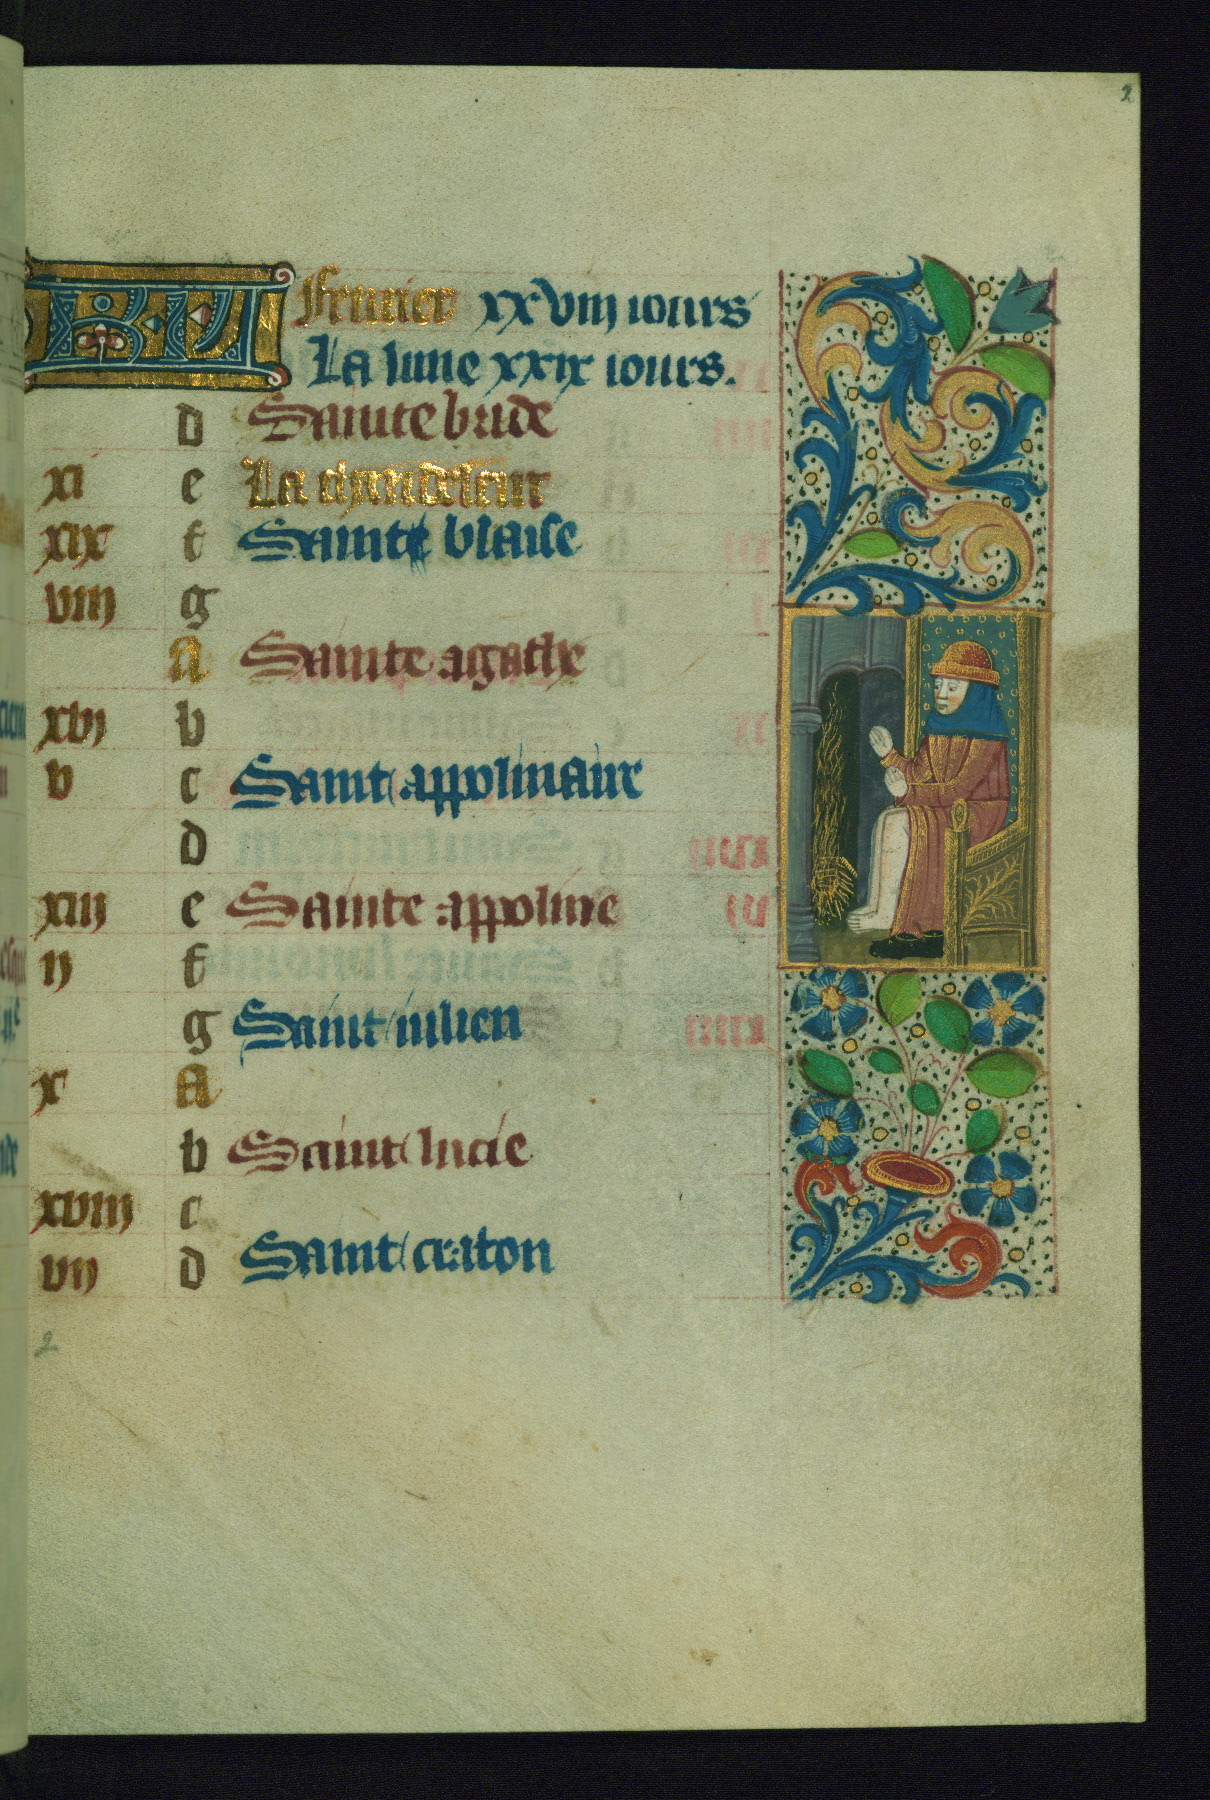 2
KL feurier xxviii iours
La lune xxix iours.
d Sainte bride
xi e La chandeleur
xix f Saint blaise
viii g
A Sainte agathe
xvi b
v c Saint appolinaire
d
xiii e Sainte appoline
ii f
g Saint iulien
x A
b Saint lucie
xviii c
vii d Saint craton
2